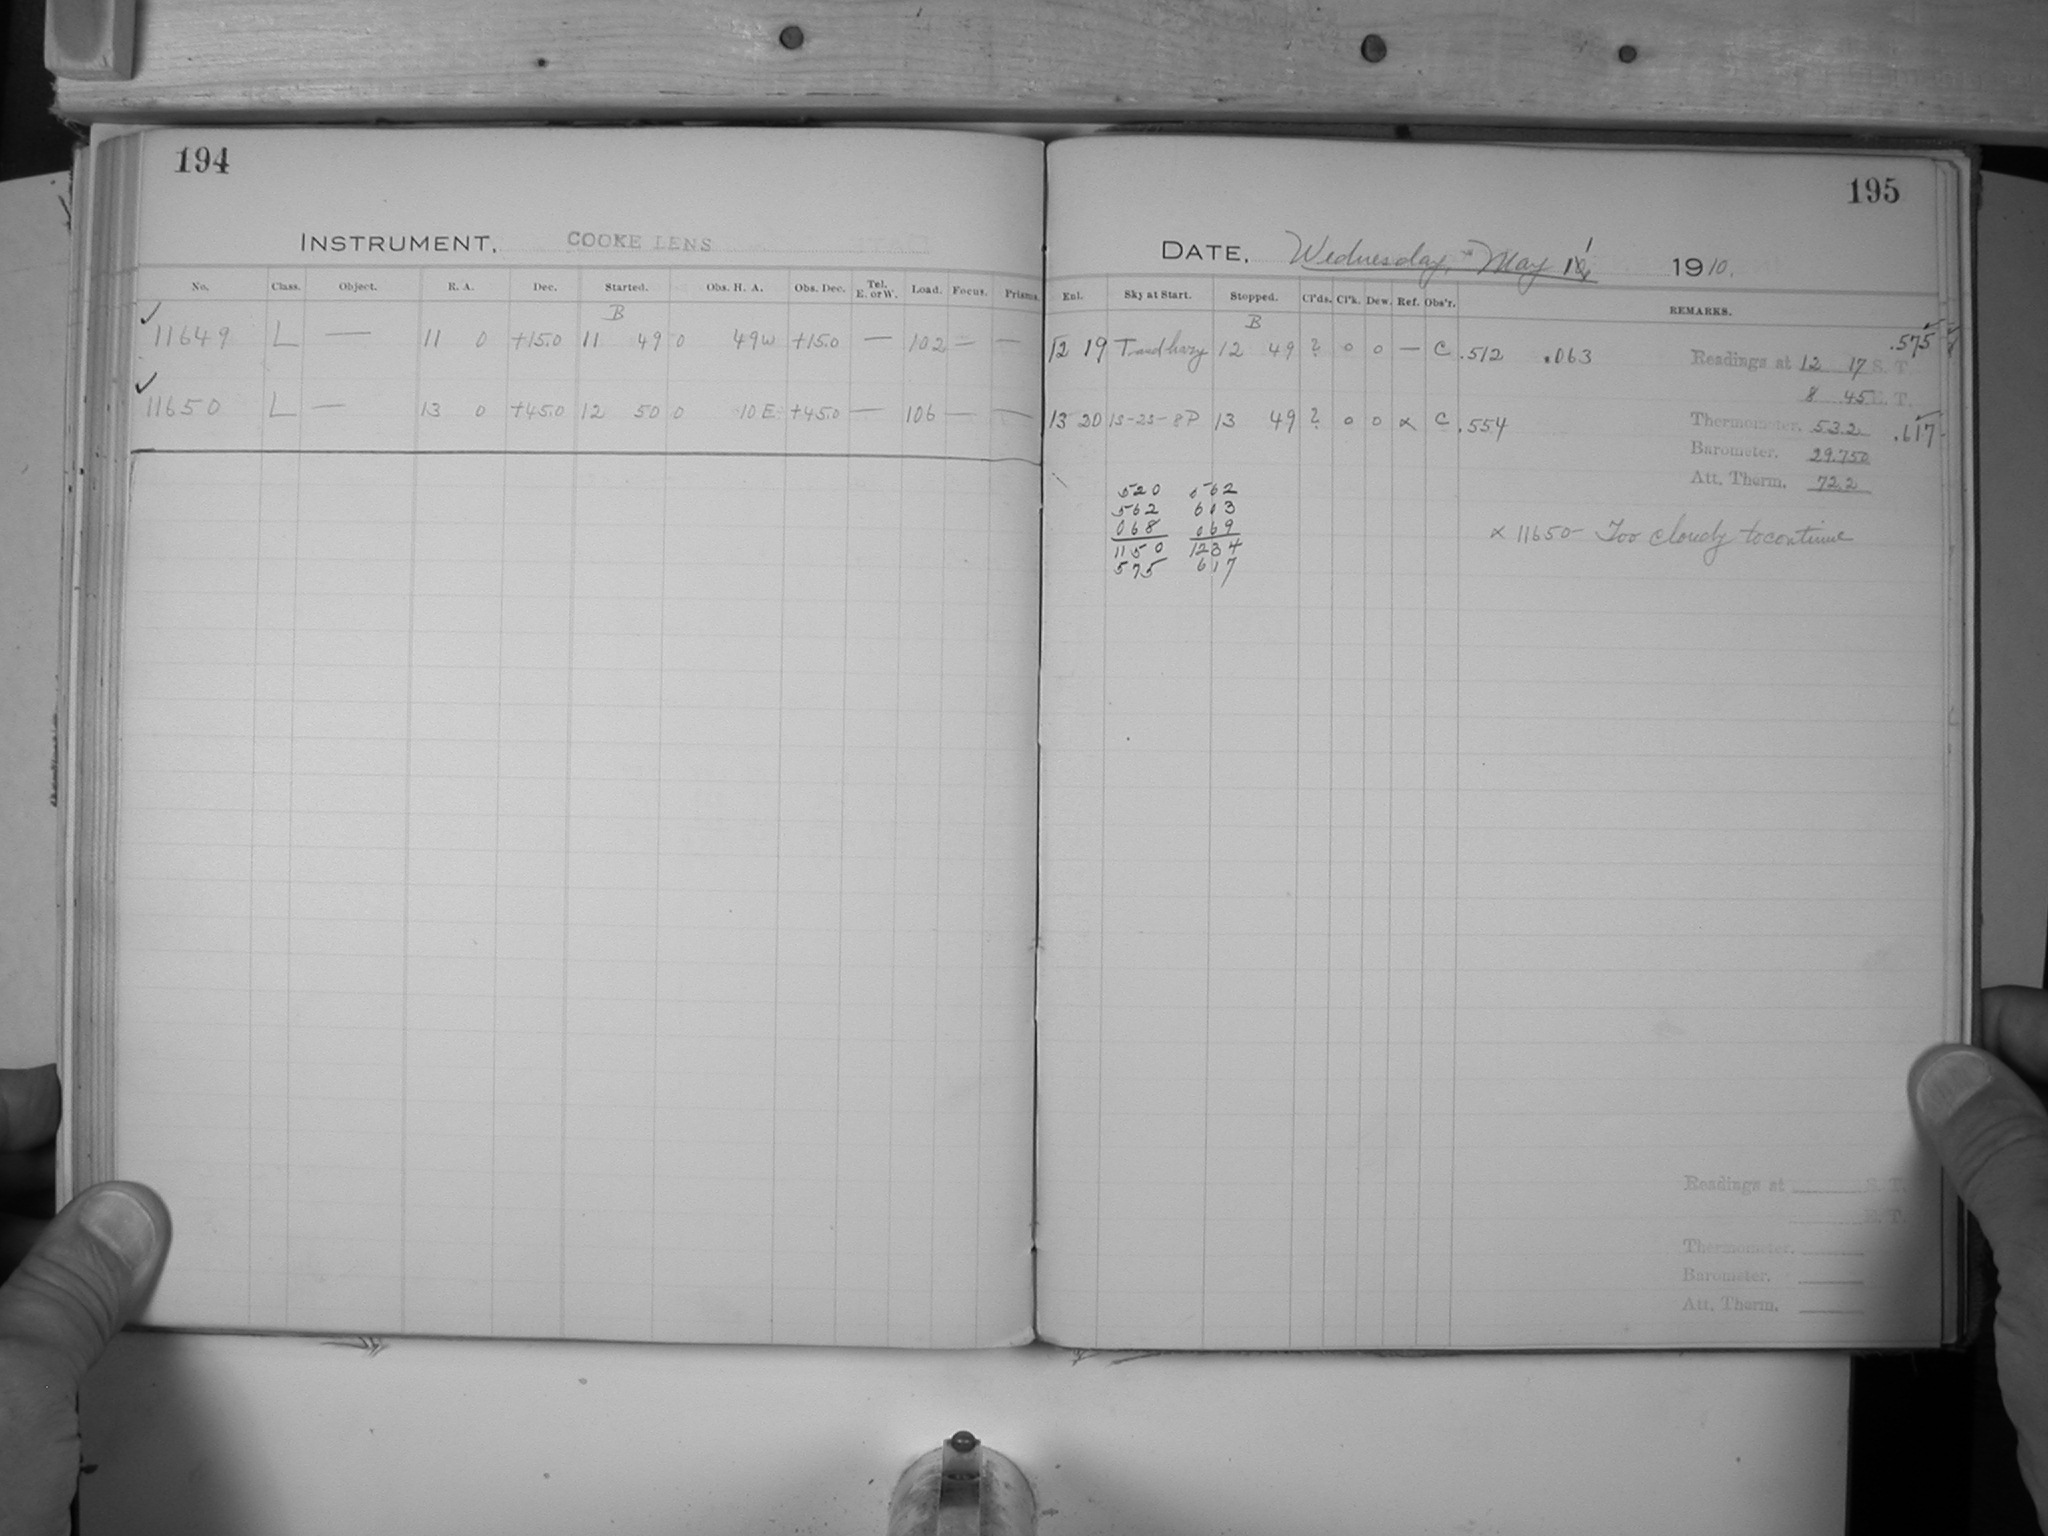 194
INSTRUMENT, COOKE LENS
No. Class. Object. R. A. Dec. Started. Obs. H. A. Obs. Dec. Tel. E. or W. Load. Focus. Prisms.
B
✓ 11649 L — 11 0 +15.0 11 49 0 49w +15.0 — 102 — —
✓ 11650 L — 13 0 +45.0 12 50 0 10 E +45.0 — 106 — —
195
DATE, Wednesday, May 1910.
Exl. Sky at Start. Stopped. Cl'ds. Cl'k. Dew. Ref. Obs'r. REMARKS.
B
12 19 T and hazy 12 49 ? 0 0 — C .512 .063 .575
Readings at 12 17 S. T.
8 45 E. T.
13 20 15-25-8P 13 49 ? 0 0 x C .554
Thermometer. 53.2 .617
Barometer. 29.750
Att. Therm. 72.2
520 562
562 613
068 069
1150 1234
575 617
x 11650 - Too cloudy to continue
Readings at S. T.
E. T.
Thermometer.
Barometer.
Att. Therm.